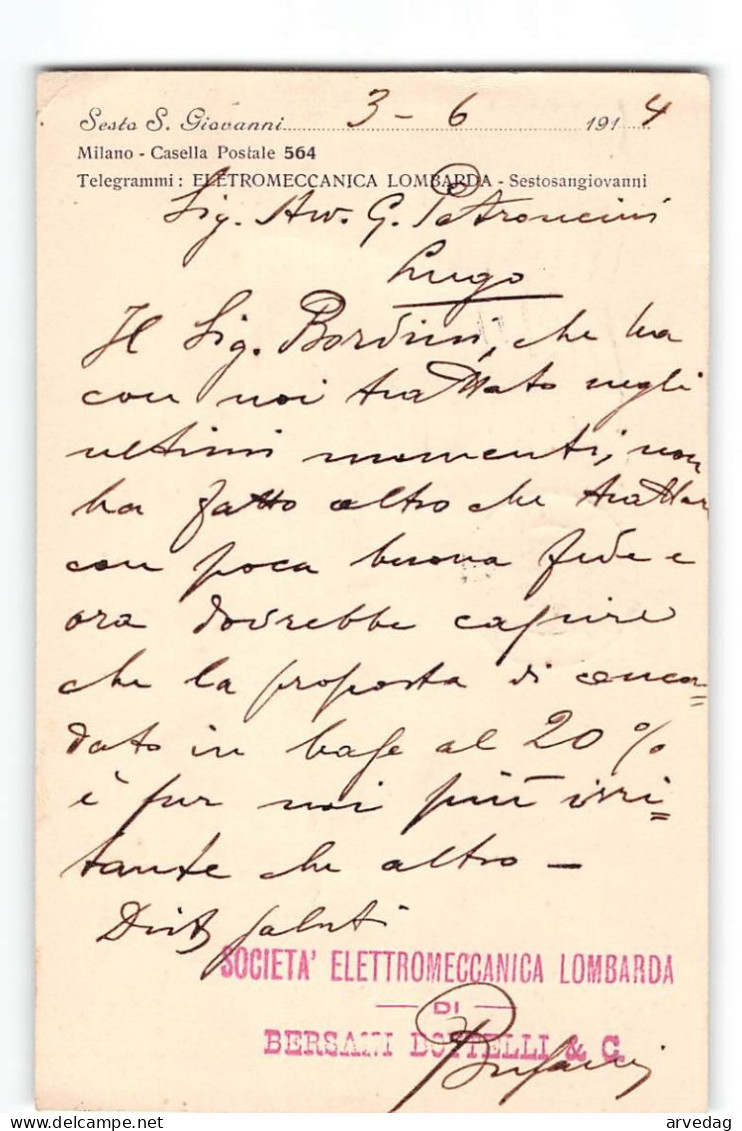 Sesto S. Giovanni 3 - 6 1914
Milano - Casella Postale 564
Telegrammi: ELETROMECCANICA LOMBARDA - Sestosangiovanni
Sig. Avv. G. Petroncini
Lugo
Il Sig. Bordini, che ha
con noi trattato negli
ultimi momenti, non
ha fatto altro che trattar
con poca buona fede e
ora dovrebbe capire
che la proposta di
in base al 20%
è per noi più irri=
tante che altro —
saluti
SOCIETA' ELETTROMECCANICA LOMBARDA
— DI —
BERSANI BOTTELLI & C.
delcampe.net
arvedag